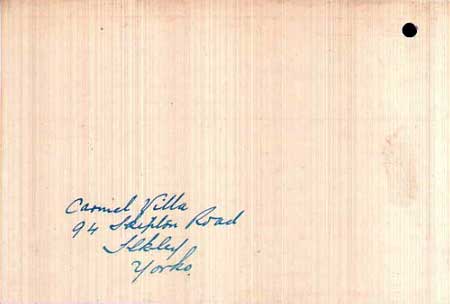 Carmel Villa
94 Skipton Road
Ilkley
Yorks.